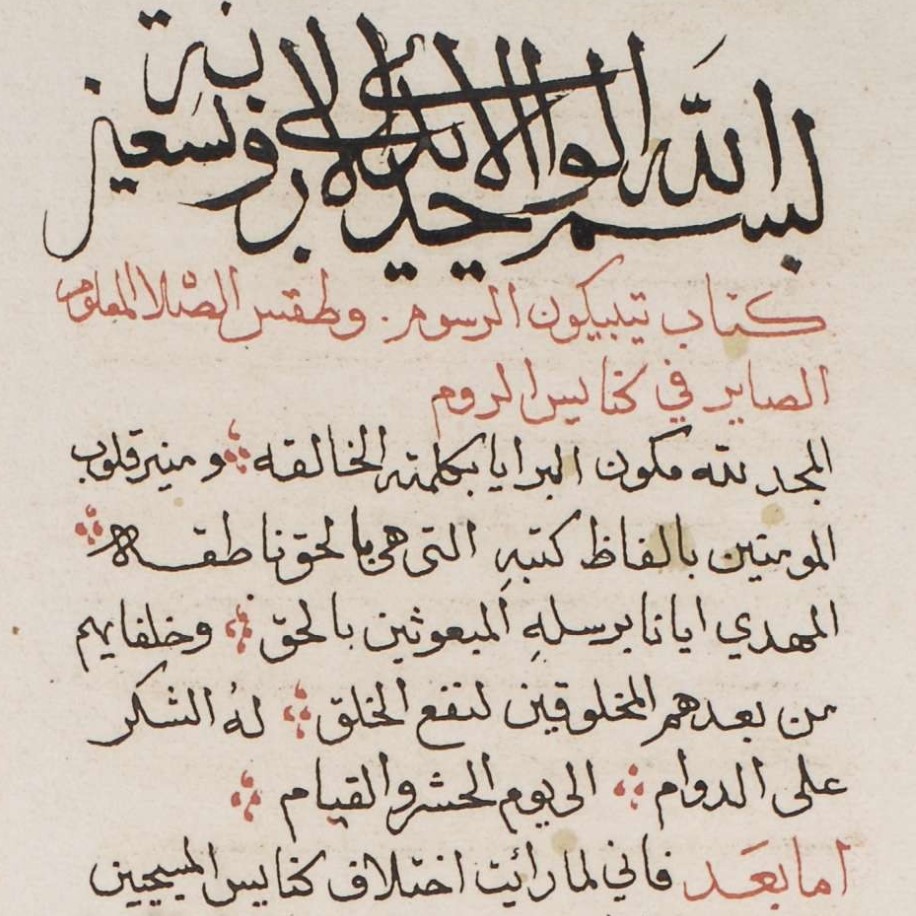 بسم الله الواحد الابدي الازلي وبه نستعين
كتاب تيبيكون الرسوم. وطقس الصلاا المعلومه
الصاير في كنايس الروم
المجد لله مكون البرايا بكلمته الخالقه ومنير قلوب
المومنين بالفاظ كتبهِ التى هى بالحق ناطقه
المهدي ايانا برسلهِ المبعوثين بالحق وخلفايهم
من بعدهم المخلوقين لنفع الخلق لهُ الشكر
على الدوام الى يوم الحشر والقيام
اما بعَد فاني لما رائت اختلاف كنايس المسيحيين